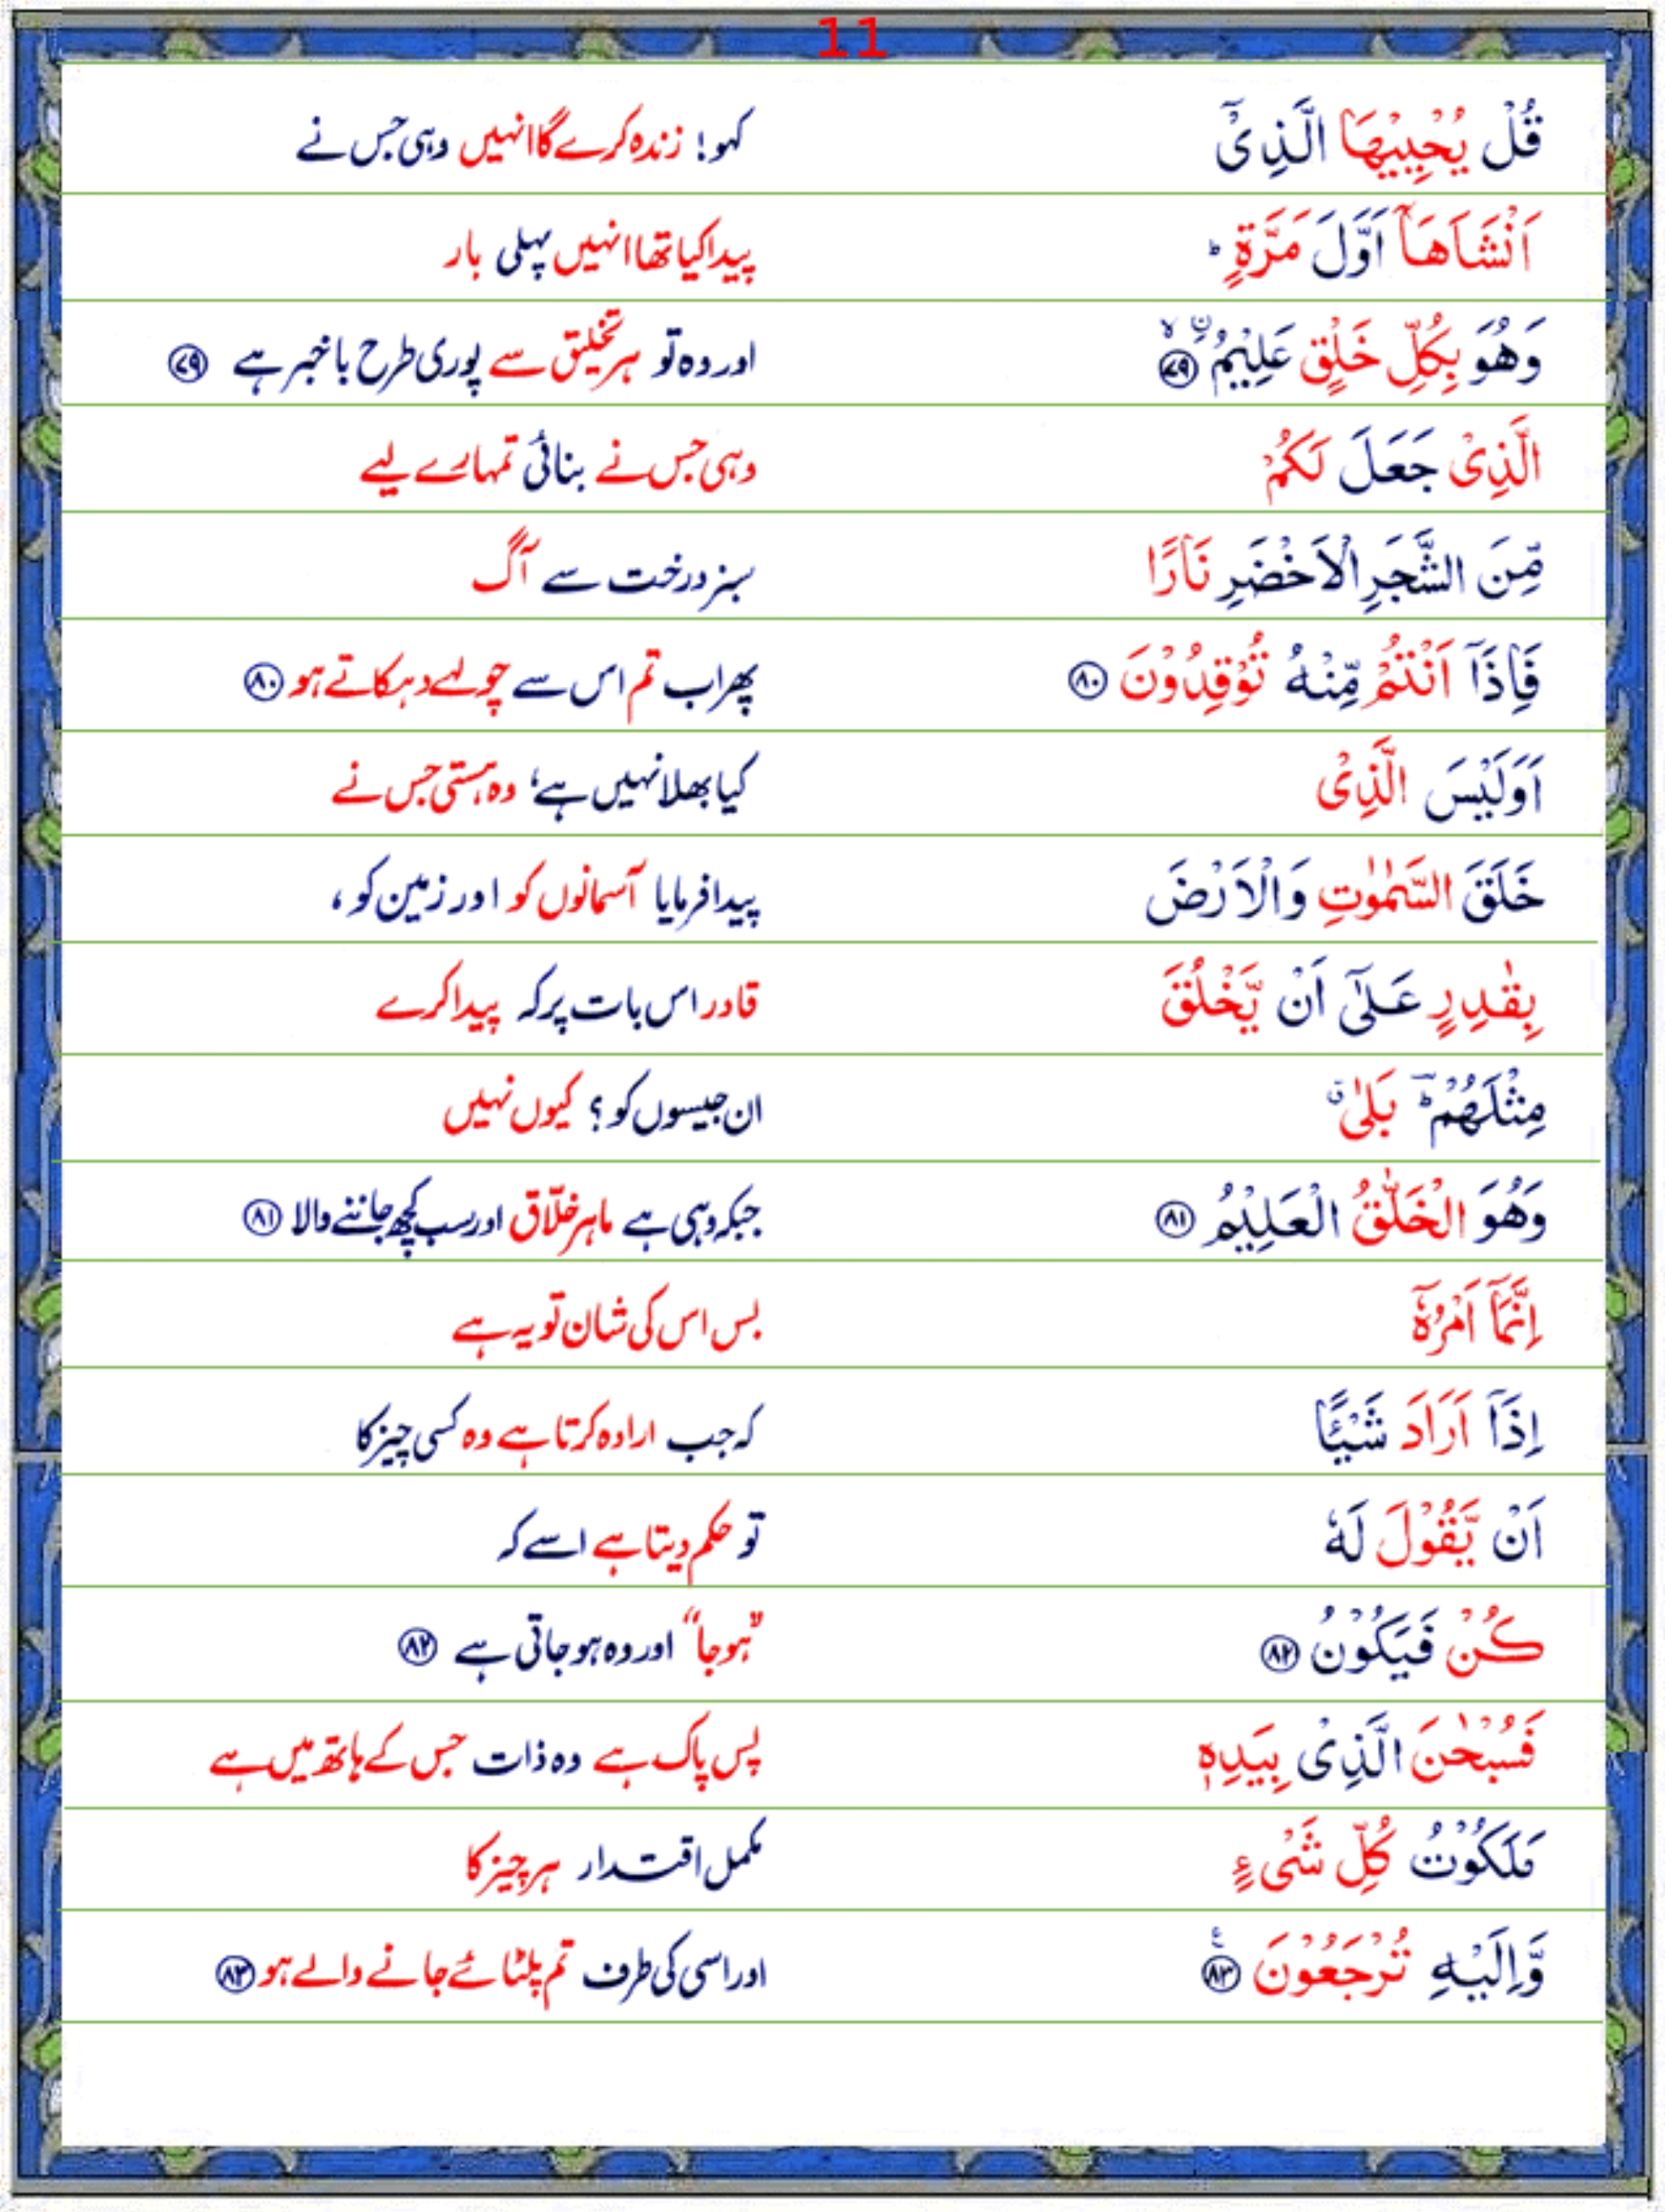 11
قُلْ يُحْيِيْهَا الَّذِيْۤ کہو! زندہ کرے گا انہیں وہی جس نے
اَنْشَاَهَاۤ اَوَّلَ مَرَّةٍ ؕ پیدا کیا تھا انہیں پہلی بار
وَهُوَ بِكُلِّ خَلْقٍ عَلِيْمُ ۨ ۙ ۷۹ اور وہ تو ہر تخلیق سے پوری طرح باخبر ہے ۷۹
الَّذِيْ جَعَلَ لَكُمْ وہی جس نے بنائی تمہارے لیے
مِّنَ الشَّجَرِ الْاَخْضَرِ نَارًا سبز درخت سے آگ
فَاِذَاۤ اَنْتُمْ مِّنْهُ تُوْقِدُوْنَ ۸۰ پھر اب تم اس سے چولہے دہکاتے ہو ۸۰
اَوَلَيْسَ الَّذِيْ کیا بھلا نہیں ہے، وہ ہستی جس نے
خَلَقَ السَّمٰوٰتِ وَالْاَرْضَ پیدا فرمایا آسمانوں کو اور زمین کو،
بِقٰدِرٍ عَلٰۤى اَنْ يَّخْلُقَ قادر اس بات پر کہ پیدا کرے
مِثْلَهُمْ ؕ بَلٰى ۗ ان جیسوں کو؟ کیوں نہیں
وَهُوَ الْخَلّٰقُ الْعَلِيْمُ ۸۱ جبکہ وہی ہے ماہر خلّاق اور سب کچھ جاننے والا ۸۱
اِنَّمَاۤ اَمْرُهٗۤ بس اس کی شان تو یہ ہے
اِذَاۤ اَرَادَ شَيْئًا کہ جب ارادہ کرتا ہے وہ کسی چیز کا
اَنْ يَّقُوْلَ لَهٗ تو حکم دیتا ہے اسے کہ
كُنْ فَيَكُوْنُ ۸۲ ”ہو جا“ اور وہ ہو جاتی ہے ۸۲
فَسُبْحٰنَ الَّذِيْ بِيَدِهٖ پس پاک ہے وہ ذات جس کے ہاتھ میں ہے
مَلَكُوْتُ كُلِّ شَيْءٍ مکمل اقتدار ہر چیز کا
وَّاِلَيْهِ تُرْجَعُوْنَ ۸۳ ع اور اسی کی طرف تم پلٹائے جانے والے ہو ۸۳